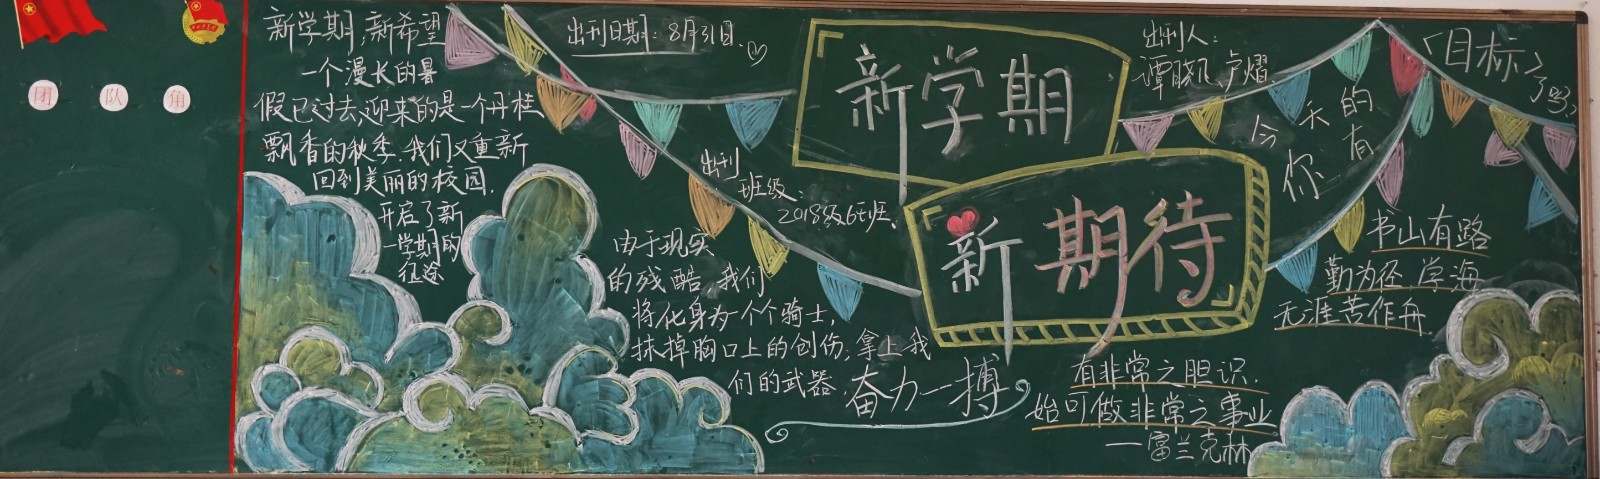 团 队 角
新学期,新希望
一个漫长的暑
假已过去,迎来的是一个丹桂
飘香的秋季.我们又重新
回到美丽的校园.
开启了新
一学期的
征途
出刊日期:8月31日.
新学期
新期待
出刊人:
谭晓凡、卢熠.
出刊
班级:
2018级6班.
由于现实
的残酷,我们
将化身为一个个骑士,
抹掉胸口上的创伤,拿上我
们的武器,奋力一搏
今天的
你有
「目标」
了吗?
书山有路
勤为径,学海
无涯苦作舟.
有非常之胆识.
始可做非常之事业
——富兰克林